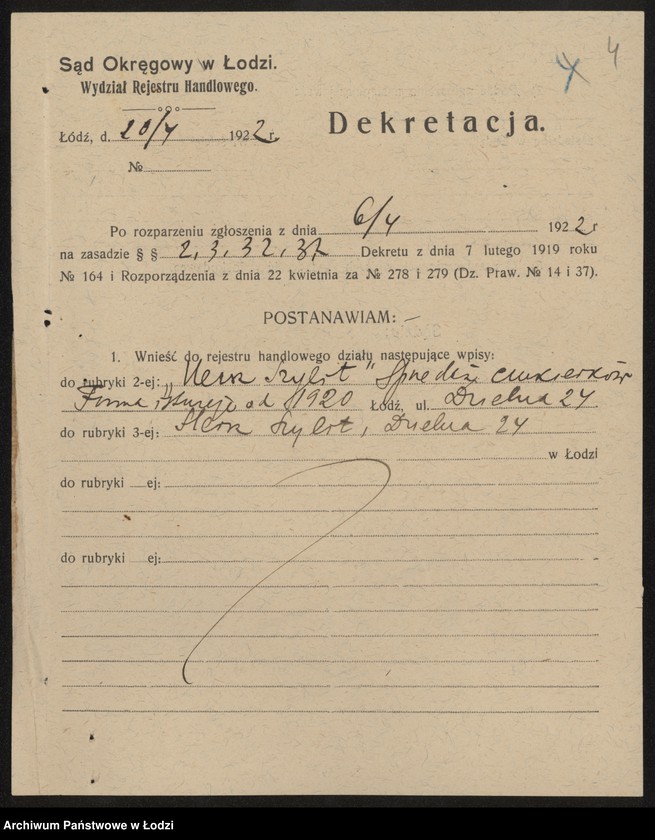 4 4
Sąd Okręgowy w Łodzi.
Wydział Rejestru Handlowego.
Łódź, d. 20/4 1922 r.
Dekretacja.
№
Po rozparzeniu zgłoszenia z dnia 6/4 1922 r
na zasadzie § § 2, 3, 32, 37 Dekretu z dnia 7 lutego 1919 roku
№ 164 i Rozporządzenia z dnia 22 kwietnia za № 278 i 279 (Dz. Praw. № 14 i 37).
POSTANAWIAM: —
1. Wnieść do rejestru handlowego działu następujące wpisy:
do rubryki 2-ej: „ " Sprzedaż cukierków
Firma istnieje od 1920 Łódź, ul. Dzielna 24
do rubryki 3-ej: Dzielna 24
w Łodzi
do rubryki ej:
do rubryki ej:
Archiwum Państwowe w Łodzi